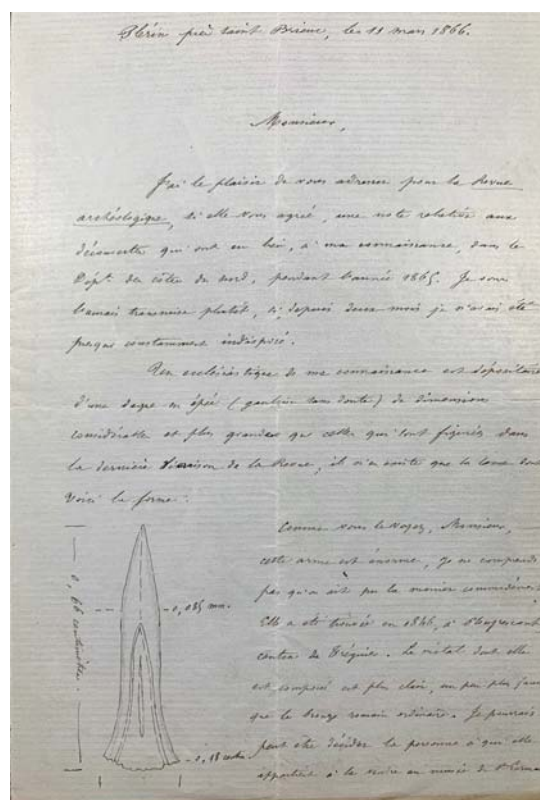 Plérin près Saint Brieuc, le 11 mars 1866.
Monsieur,
J'ai le plaisir de vous adresser pour la Revue
archéologique, si elle vous agrée, une note relative aux
découvertes qui ont eu lieu, à ma connaissance, dans le
Dépt. des côtes du nord, pendant l'année 1865. Je vous
l'aurais transmise plutôt, si, depuis deux mois je n'avais été
presque constamment indisposé.
Un ecclésiastique de ma connaissance est dépositaire
d'une dague ou épée (gauloise sans doute) de dimensions
considérable et plus grandes que celles qui sont figurées dans
la dernière livraison de la Revue, il n'en existe que la lame dont
voici la forme :
Comme vous le voyez, Monsieur,
cette arme est énorme, je ne comprends
pas qu'on ait pu la manier commodément
Elle a été trouvée en 1846, à
canton de Tréguier. Le métal dont elle
est composé est plus clair, un peu plus jaune
que le bronze romain ordinaire. Je pourrais
peut être décider la personne à qui elle
appartient à la vendre au musée de St Germain
0,66 centimètres
0,085 mm.
0,18 cent.